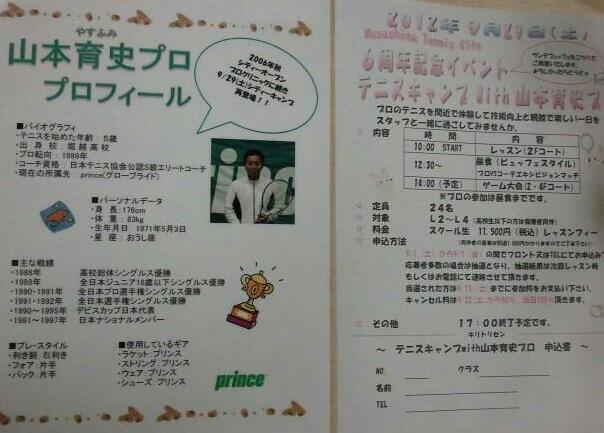 やすふみ
山本育史プロ
プロフィール
2006年秋
シティーオープン
プロクリニックに続き
9/29(土)シティーキャンプ
再登場！！
■バイオグラフィ
・テニスを始めた年齢：5歳
・出身校：堀越高校
・プロ転向：1989年
・コーチ資格：日本テニス協会公認S級エリートコーチ
・現在の所属先：prince(グローブライド)
■パーソナルデータ
・身長：176cm
・体重：83kg
・生年月日：1971年5月3日
・星座：おうし座
■主な戦績
・1988年 高校総体シングルス優勝
・1989年 全日本ジュニア18歳以下シングルス優勝
・1990-1991年 全日本プロ選手権シングルス優勝
・1991-1992年 全日本選手権シングルス優勝
・1990～1995年 デビスカップ日本代表
・1991～1997年 日本ナショナルメンバー
■プレースタイル
・利き腕 右利き
・フォア：片手
・バック：片手
■使用しているギア
・ラケット：プリンス
・ストリング：プリンス
・ウェア：プリンス
・シューズ：プリンス
prince
2012年9月29日(土)
Musashino Tennis City
6周年記念イベント
テニスキャンプwith山本育史プ
プロのテニスを間近で体験して技術向上と親睦で楽しい一日を
スタッフと一緒に過ごしてみませんか。
☆ 内容
時間 内容
10:00 START レッスン(2Fコート)
12:30～ 昼食(ビュッフェスタイル)
プロVSコーチエキシビションマッチ
14:00(予定) ゲーム大会(2・4Fコート)
※プロの参加は昼食までです。
☆ 定員 24名
☆ 対象 L2～L4(高校生以下の方は保護者同伴)
☆ 料金 スクール生 11,500円(税込)レッスンフィー
☆ 申込方法
の間でフロント又はTELにてお申込み下
応募者多数の場合は抽選となり、抽選結果は次回レッスン時
もしくはお電話にて連絡させて頂きます。
当選された方は までに参加料をお支払い下さい。
キャンセル料は
☆ その他 17:00終了予定です。
キリトリセン
～ テニスキャンプwith山本育史プロ 申込書 ～
NO. クラス
名前
TEL